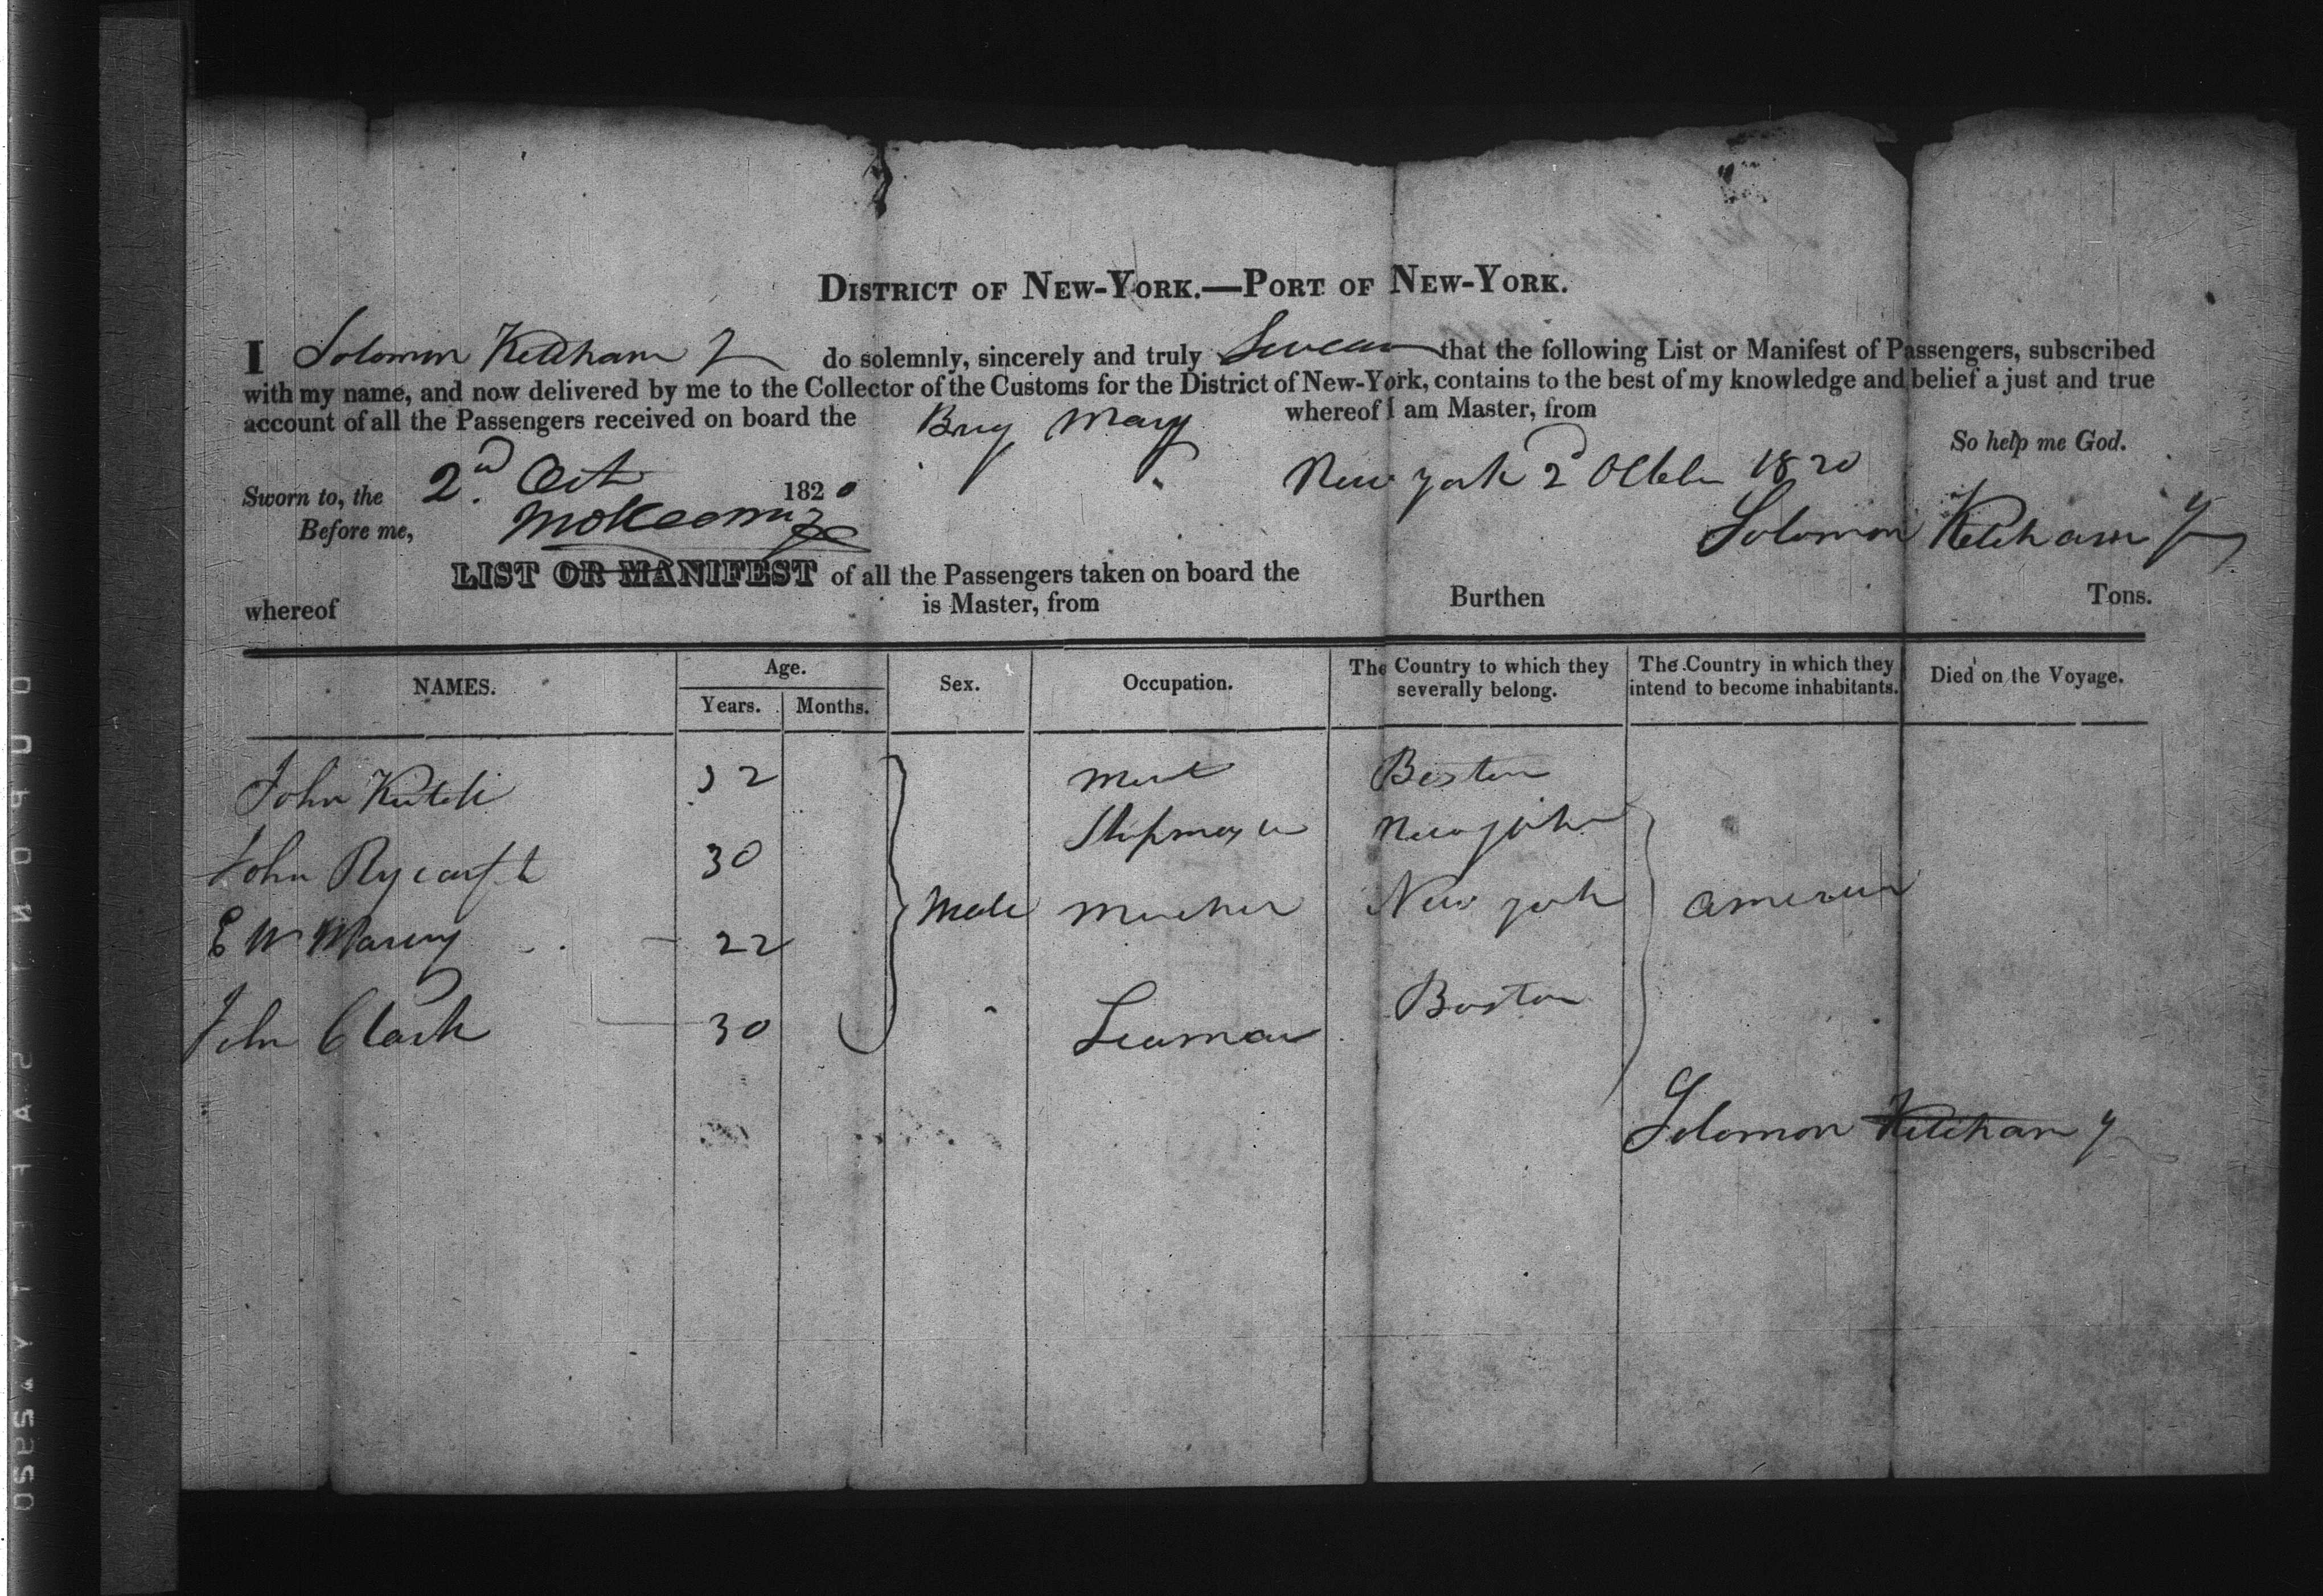 DISTRICT OF NEW-YORK.—PORT OF NEW-YORK.
I Solomon Ketcham Jr do solemnly, sincerely and truly Swear that the following List or Manifest of Passengers, subscribed
with my name, and now delivered by me to the Collector of the Customs for the District of New-York, contains to the best of my knowledge and belief a just and true
account of all the Passengers received on board the Brig Mary whereof I am Master, from
So help me God.
Sworn to, the 2nd. Oct 1820 New york 2d Octobr 1820
Before me, Solomon Ketcham Jr
LIST OR MANIFEST of all the Passengers taken on board the
whereof is Master, from Burthen Tons.
NAMES. Age. Years. Months. Sex. Occupation. The Country to which they severally belong. The Country in which they intend to become inhabitants. Died on the Voyage.
John 32 Mert Boston
John Rycarft 30 Shipmaster New york
E W 22 Male Mercher New york america
John Clark 30 Seaman Boston
Solomon Ketcham Jr